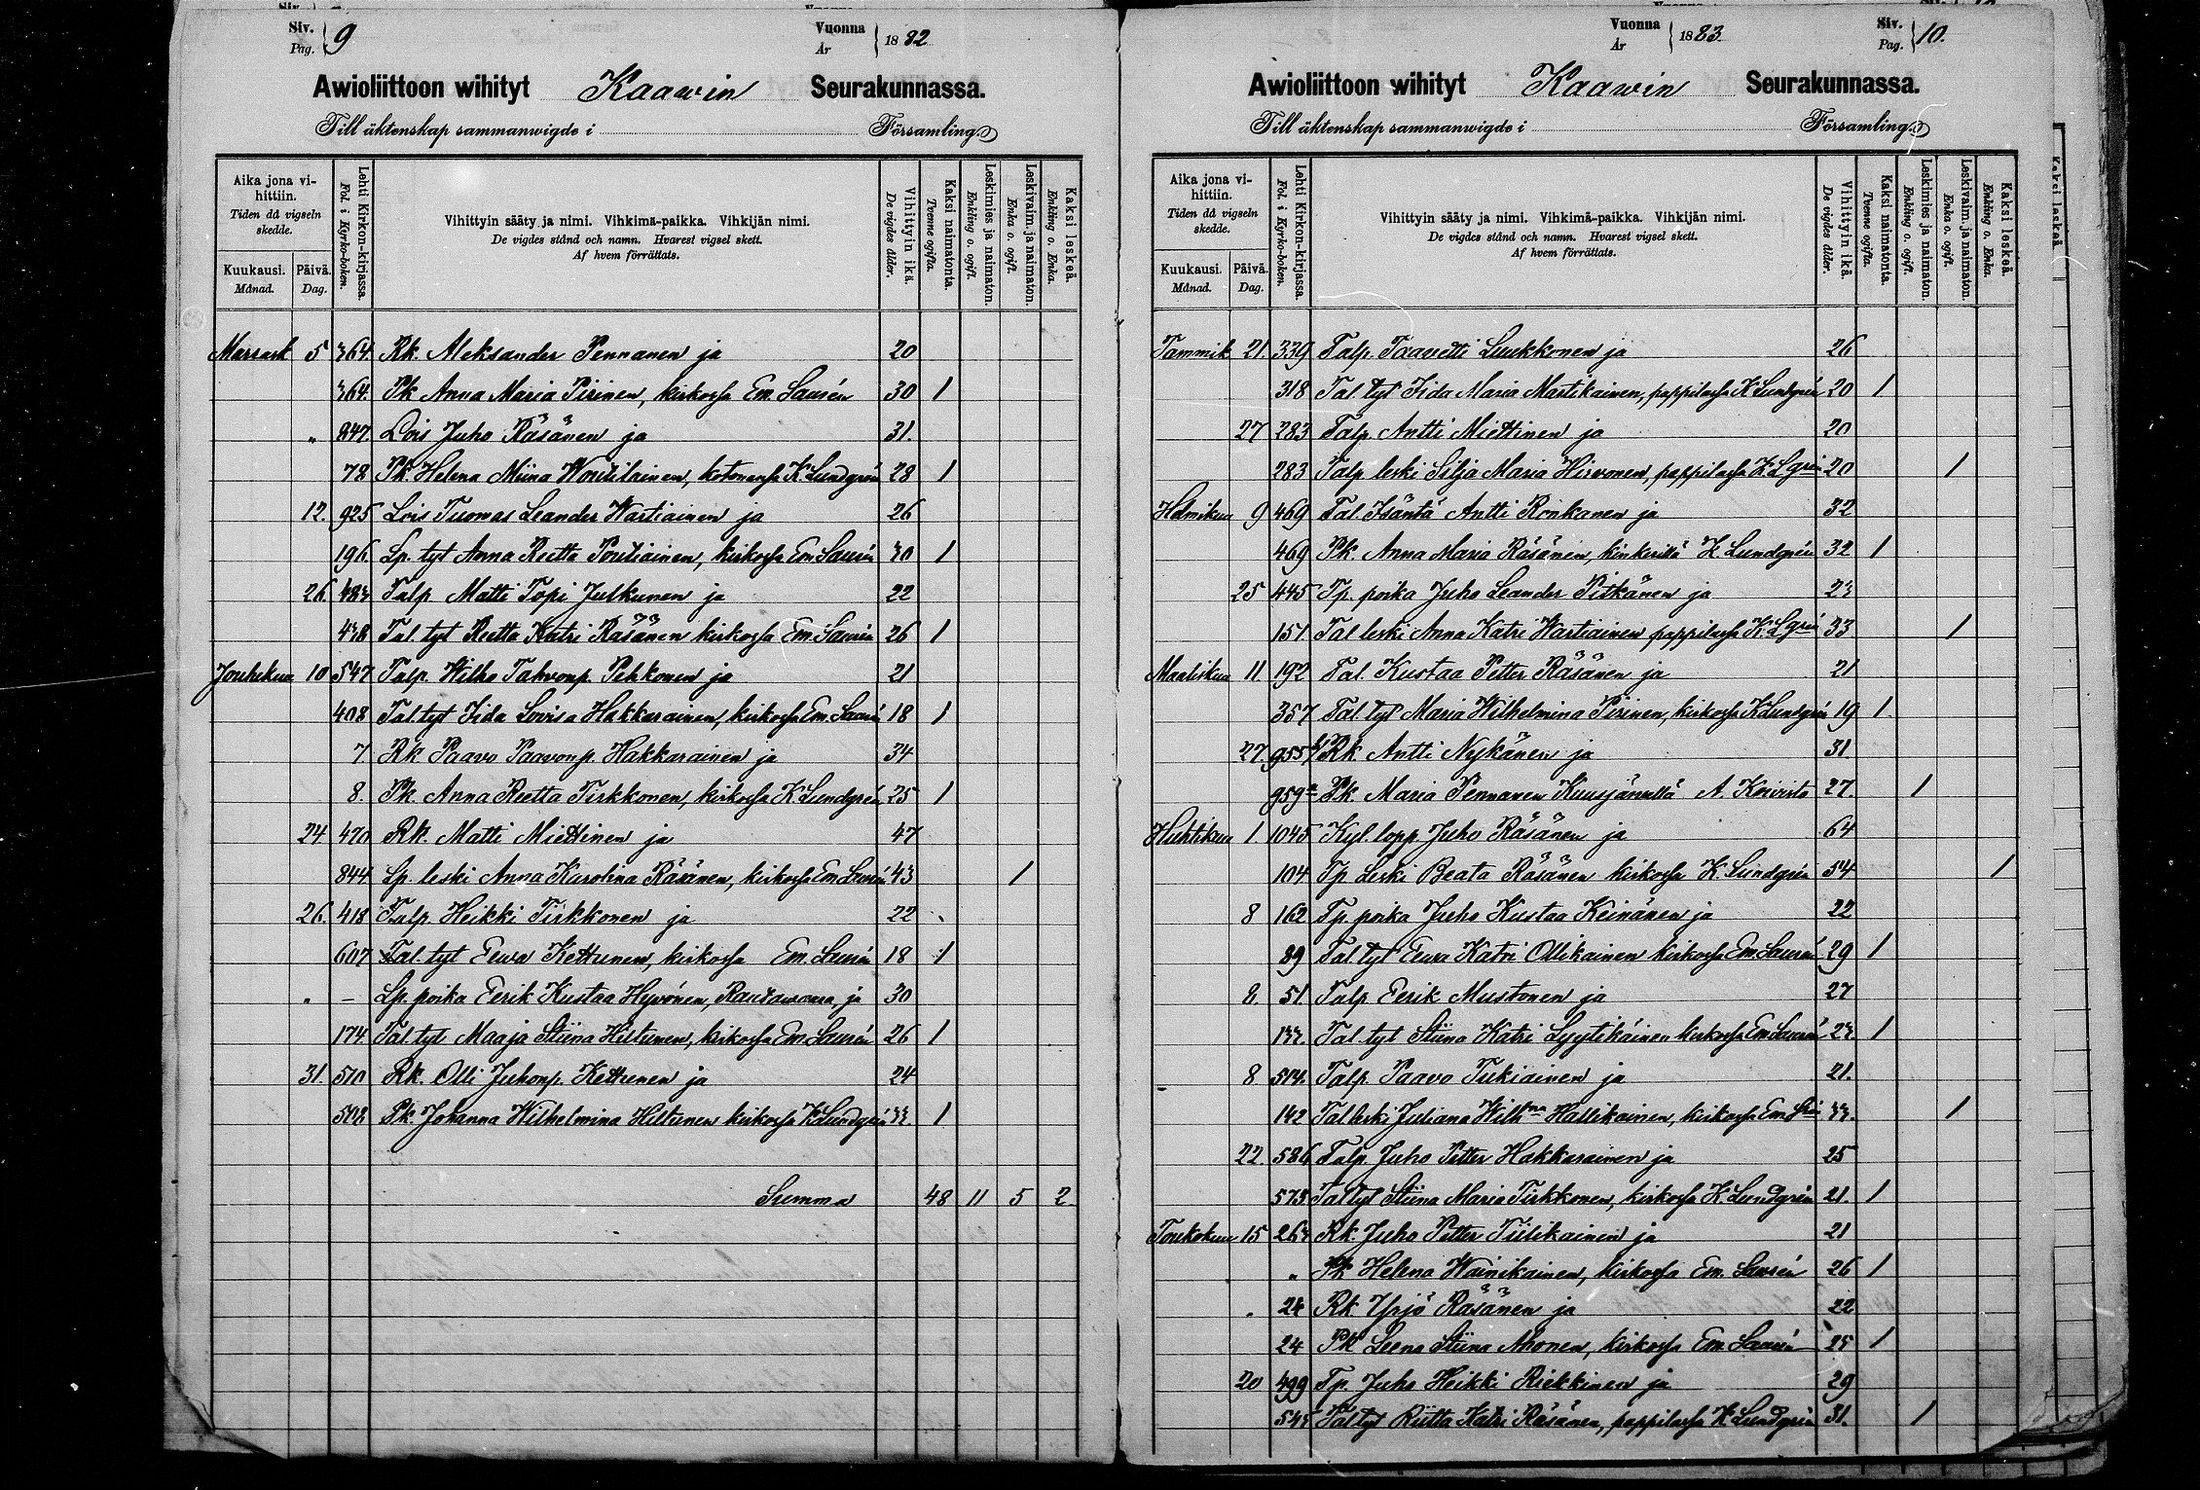 Siv. Pag. 9
Vuonna År 1882
Awioliittoon wihityt Kaawin Seurakunnassa.
Till äktenskap sammanwigde i Församling
Aika jona vihittiin. Tiden då vigseln skedde.
Kuukausi. Månad. Päivä. Dag.
Lehti Kirkon-kirjassa. Fol. i Kyrko-boken.
Vihittyin sääty ja nimi. Vihkimä-paikka. Vihkijän nimi.
De vigdes stånd och namn. Hvarest vigsel skett.
Af hvem förrättats.
Vihittyin ikä. De vigdes ålder.
Kaksi naimatonta. Tvenne ogifta.
Leskimies ja naimaton. Enkling o. ogift.
Leskivaim. ja naimaton. Enka o. ogift.
Kaksi leskeä. Enkling o. Enka.
Marrask 5 364 Rk. Aleksander Pennanen ja 20
364. Pk Anna Maria Pirinen, kirkossa Em. Saurén 30 1
" 847 Lois Juho Räsänen ja 31.
78 Pk. Helena Miina Woutilainen, kotonansa K. Lundgrén 28 1
12. 925 Lois Tuomas Leander Wartiainen ja 26
196. Lp. tyt Anna Reetta Poutiainen, kirkossa Em. Saurén 30 1
26. 483 Talp Matti Topi Julkunen ja 22
438 Tal. tyt Reetta Katri Räsänen kirkossa Em. Saurén 26 1
Jouhukuu 10 547 Talp. Wilho Tahvonp. Pehkonen ja 21
408 Tal. tyt Iida Lovisa Hakkarainen, kirkossa Em. Saurén 18 1
7 Rk Paavo Paavonp. Hakkarainen ja 34
8. Pk. Anna Reetta Tirkkonen, kirkossa K. Lundgrén 25 1
24 470 Rk. Matti Miettinen ja 47
844 Lp. leski Anna Karolina Räsänen, kirkossa Em. Saurén 43 1
26. 418 Talp. Heikki Tirkkonen ja 22
607 Tal. tyt Eewa Kettunen, kirkossa Em. Saurén 18 1
" – Lp. poika Eerik Kustaa Hyvönen, Rautavaara, ja 30
174. Tal. tyt Maaja Stiina Hiltunen, kirkossa Em. Saurén 26 1
31. 510 Rk. Olli Juhonp. Kettunen ja 24
508 Pk. Johanna Wilhelmina Hiltunen kirkossa K. Lundgrén 1
Summa 48 11 5 2
Vuonna År 1883.
Siv. Pag. 10.
Awioliittoon wihityt Kaawin Seurakunnassa.
Till äktenskap sammanwigde i Församling
Aika jona vihittiin. Tiden då vigseln skedde.
Kuukausi. Månad. Päivä. Dag.
Lehti Kirkon-kirjassa. Fol. i Kyrko-boken.
Vihittyin sääty ja nimi. Vihkimä-paikka. Vihkijän nimi.
De vigdes stånd och namn. Hvarest vigsel skett.
Af hvem förrättats.
Vihittyin ikä. De vigdes ålder.
Kaksi naimatonta. Tvenne ogifta.
Leskimies ja naimaton. Enkling o. ogift.
Leskivaim. ja naimaton. Enka o. ogift.
Kaksi leskeä. Enkling o. Enka.
Tammik 21. 339 Talp. Taavetti Luukkonen ja 26
318 Tal. tyt Iida Maria Martikainen, pappilassa K Lundgrén 20 1
27 283 Talp. Antti Miettinen ja 20
283 Talp. leski Silja Maria Hirvonen, pappilassa K. Lgrén 20 1
Helmikuu 9 469 Tal. Isäntä Antti Ronkanen ja 32
469 Pk. Anna Maria Räsänen, kinkerillä K Lundgrén 32 1
25 445 Tp. poika Juho Leander Pitkänen ja 23
151 Tal leski Anna Katri Wartiainen pappilassa K. Lgrén 33 1
Maaliskuu 11 192 Tal. Kustaa Petter Räsänen ja 21
357 Tal. tyt Maria Wilhelmina Pirinen, kirkossa K Lundgrén 19 1.
27. 955 Rk Antti Nykänen ja 31.
959 Pk. Maria Pennanen Kuusjärvellä A. Koivisto 27. 1
Huhtikuu 1. 1045 Kyl. lopp Juho Räsänen ja 64
104 Tp Leski Beata Räsänen kirkossa K. Lundgrén 54 1
8 162 Tp. poika Juho Kustaa Keinänen ja 22
89 Tal tyt Eewa Katri Ollikainen kirkossa Em. Saurén 29 1
8. 51 Talp Eerik Mustonen ja 27
Tal. tyt Stiina Katri Lyytikäinen kirkossa Em Saurén 23. 1
8 514. Talp. Paavo Tukiainen ja 21.
142 Tal leski Juliana Wilhna Hallikainen, kirkossa Em. 1
22. 586 Talp. Juho Petter Hakkarainen ja 25
573. Tal tyt Stiina Maria Tirkkonen, kirkossa K. Lundgrén 21. 1
Toukokuu 15 263 Rk. Juho Petter Tiilikainen ja 21
" Pk Helena Wainikainen, kirkossa Em. Saurén 26 1
" 24 Rk Yrjö Räsänen ja 22
24 Pk Leena Stiina Ahonen, kirkossa Em. Saurén 25 1
20 499 Tp. Juho Heikki Riekkinen ja 29
543 Tal tyt Riitta Katri Räsänen, pappilassa K. Lundgrén 31. 1
Kaksi leskeä